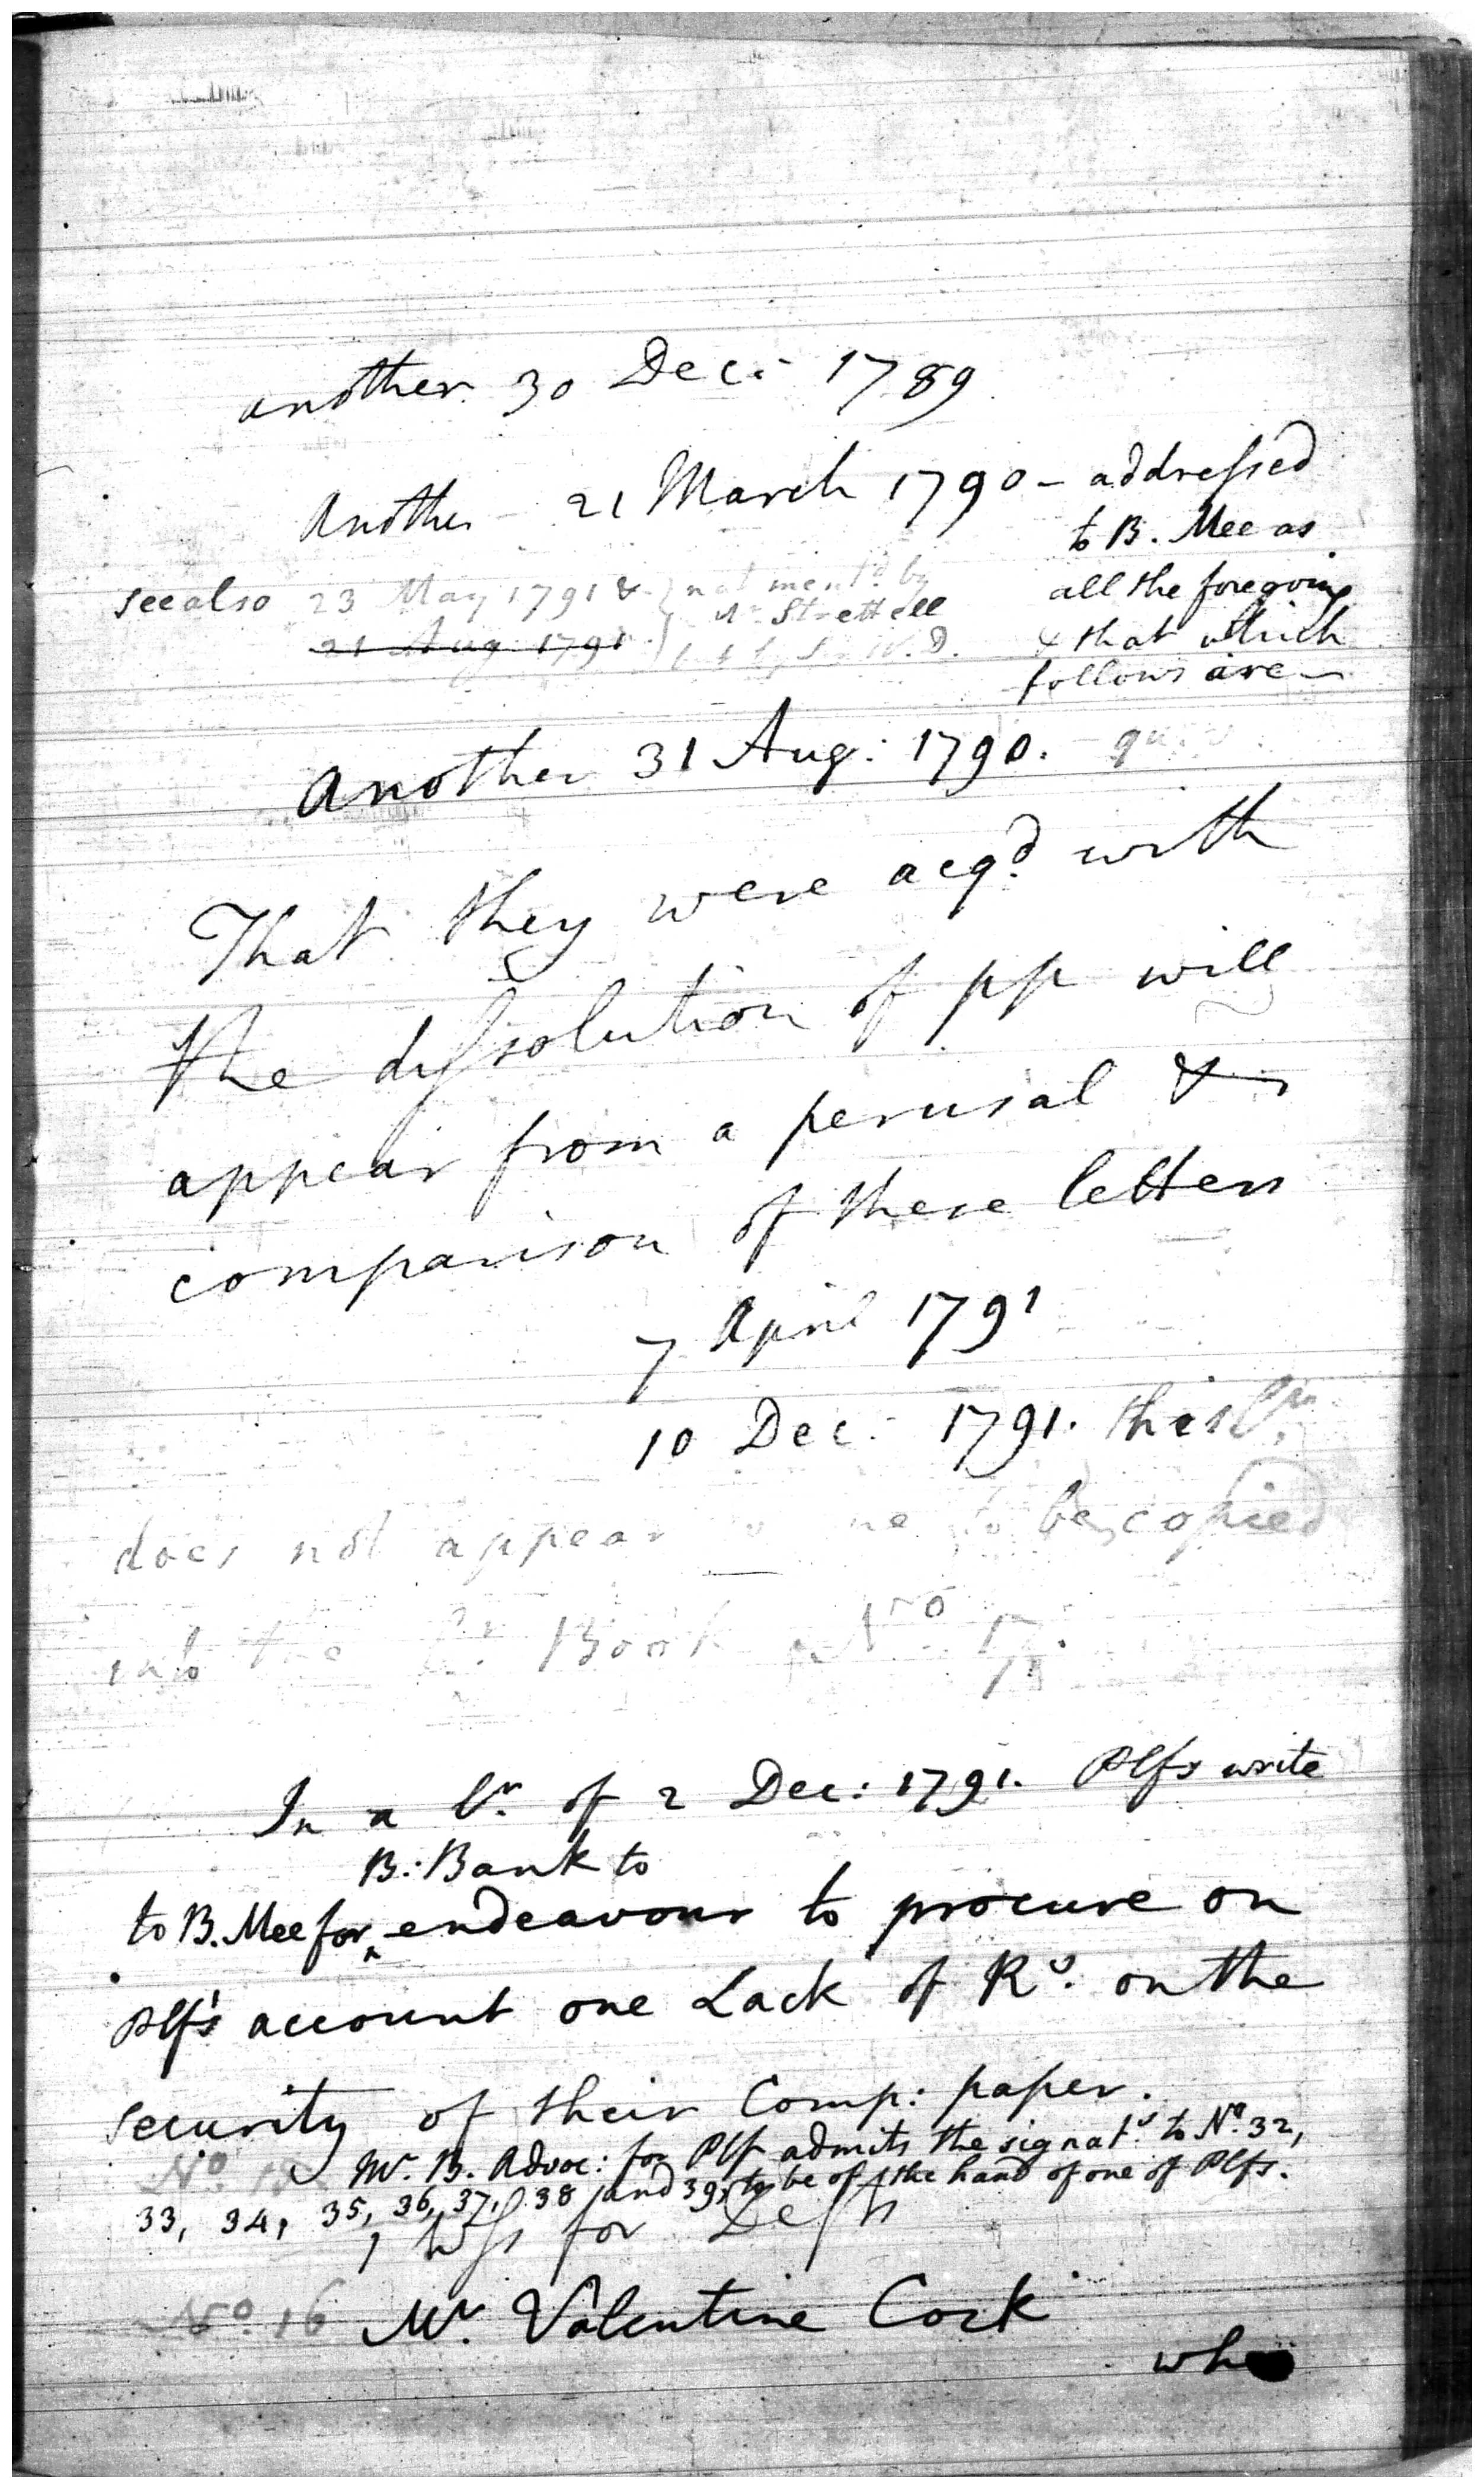 another 30 Dec: 1789
Another - 21 March 1790 - addressed
to B. Mee as
all the foregoing
& that which
follows are
see also 23 May 1791 & } not ment.d by
Mr Strettell
21 Aug. 1791
Another 31 Aug: 1790.
That they were acq.d with
the dissolution of pp will
appear from a perusal &
comparison of these letters
7 April 1791
10 Dec: 1791. this lr.
does not appear to me to be copied
into the lr. Book No 17.
In a lr. of 2 Dec: 1791. Plfs write
B: Bank to
to B. Mee for ^ endeavour to procure on
Plfs' account one Lack of Rs. on the
security of their Comp: paper.
No. Mr. B. Advoc: for Plf admits the signat.s to No. 32,
33, 34, 35, 36, 37, 38 and 39, to be of the hand of one of Plfs.
Wss for Defts
No. 16 Mr. Valentine Cork
who